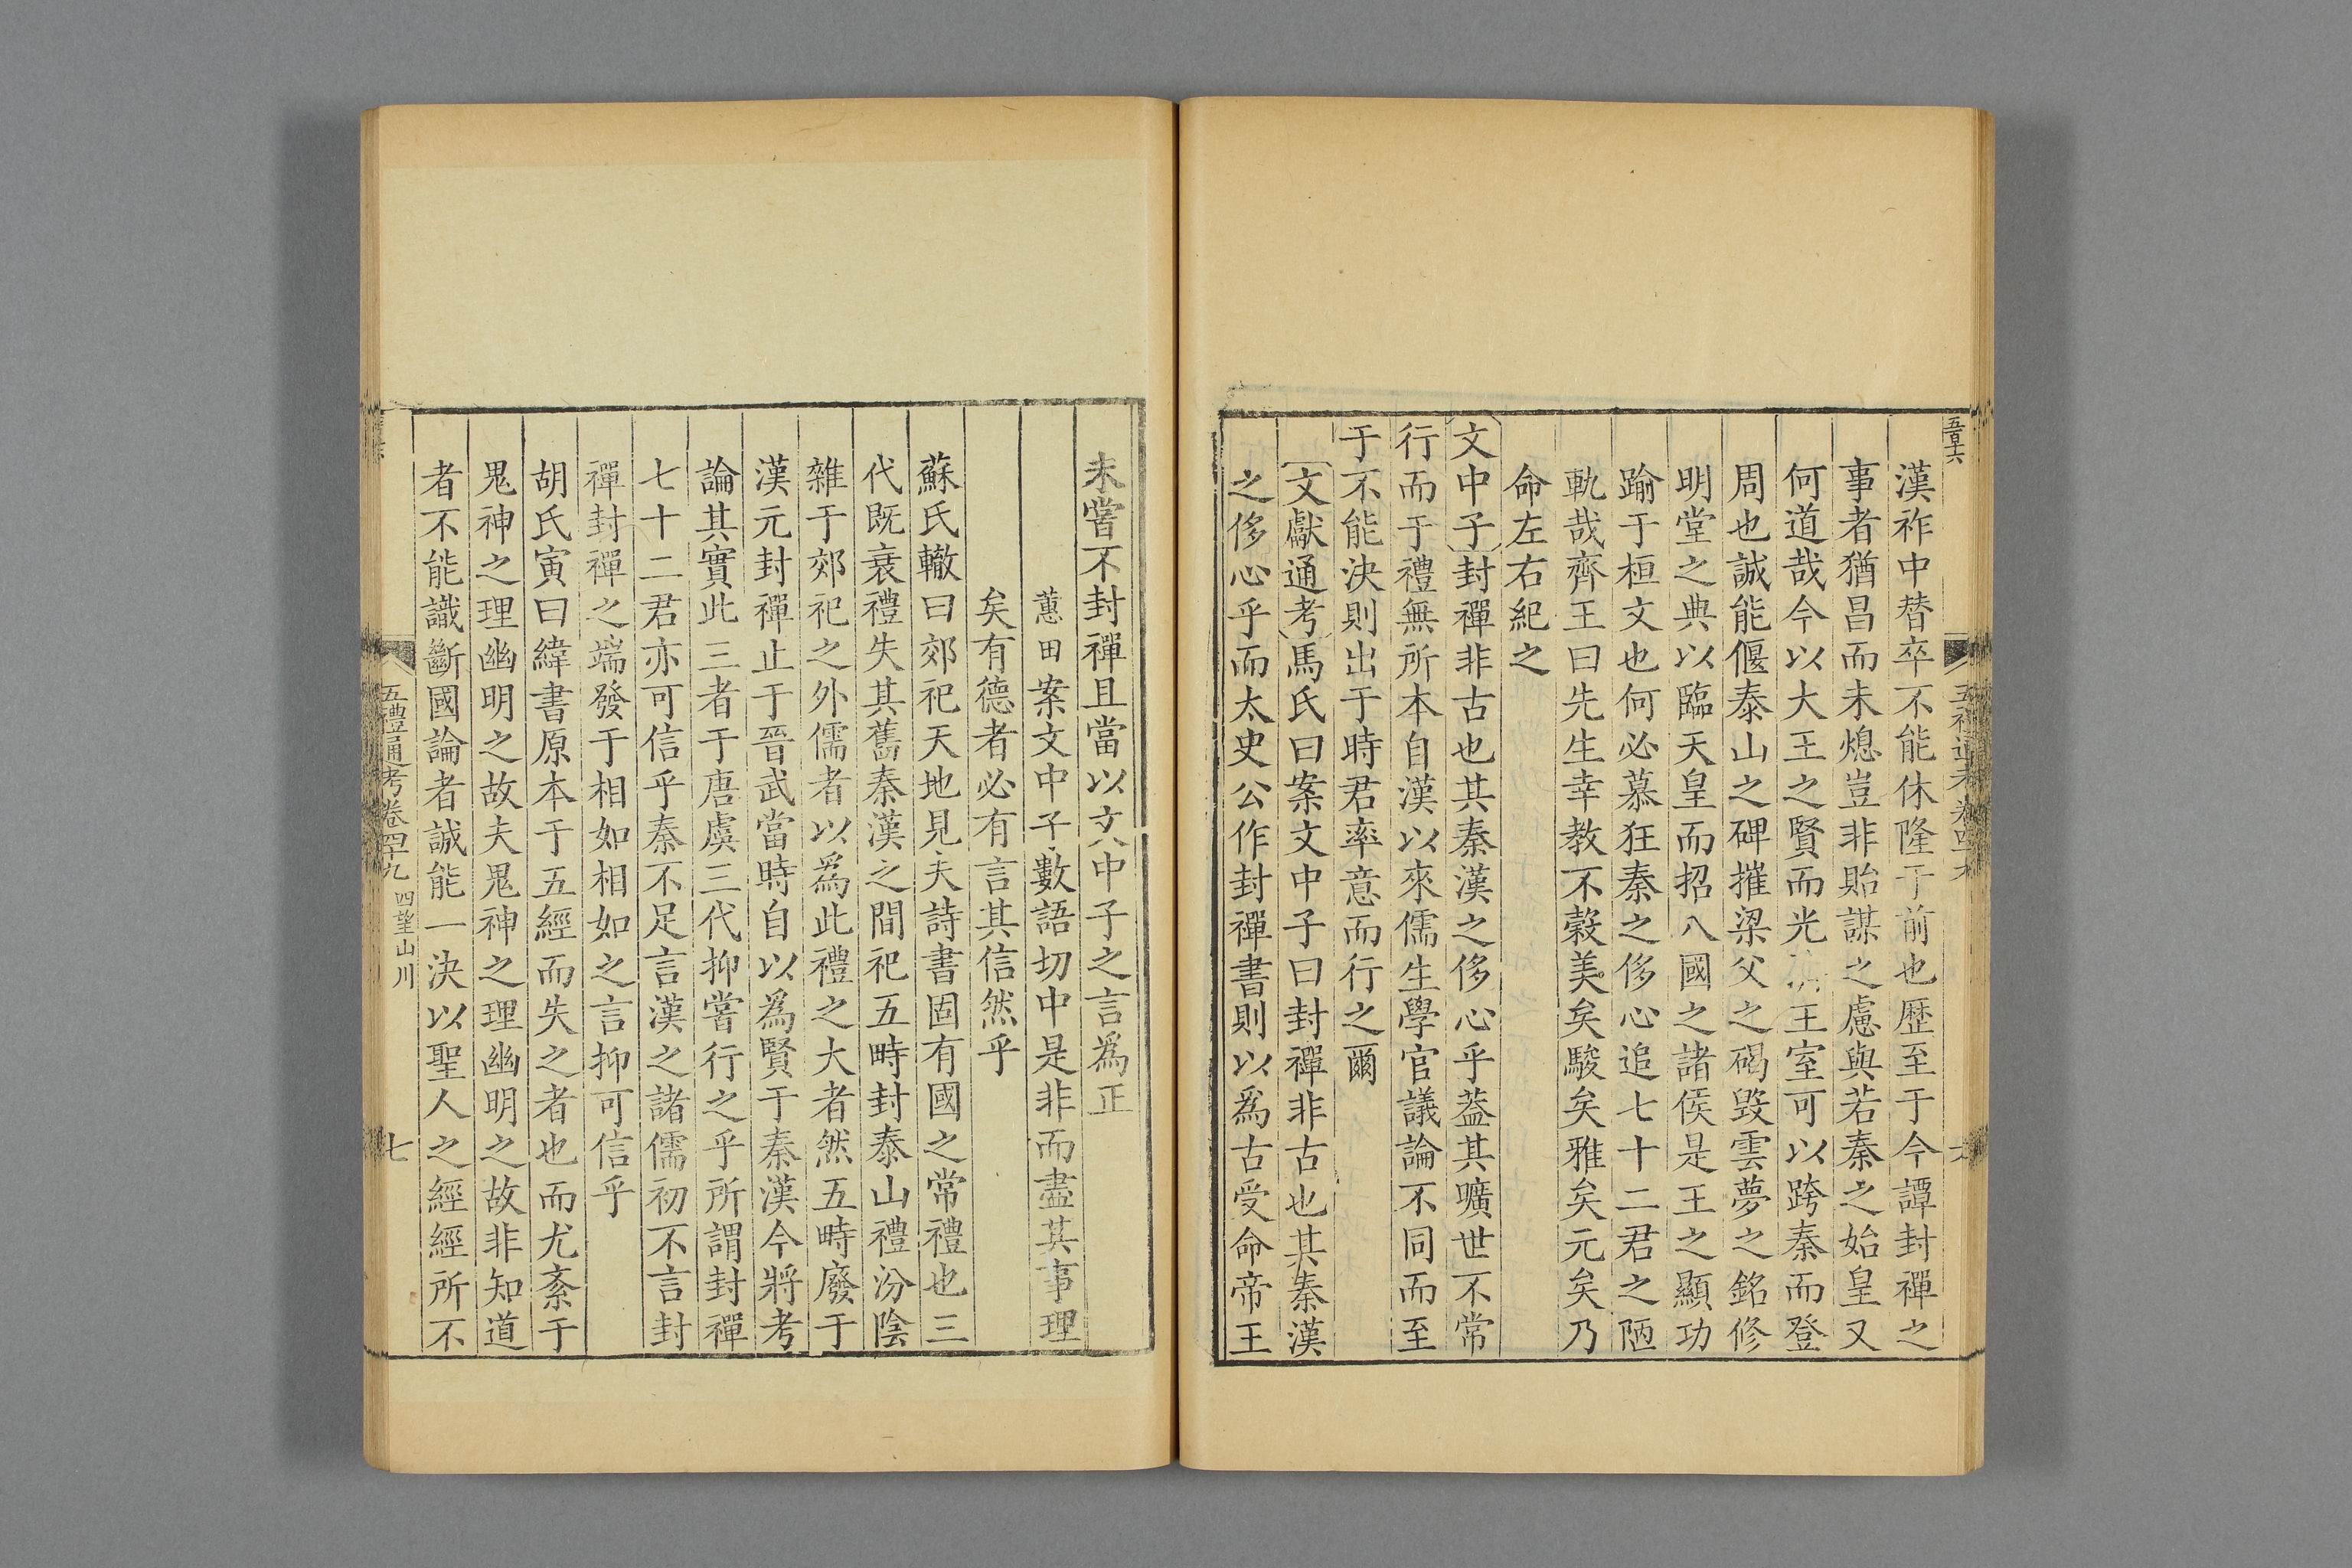 五百十六
漢祚中替卒不能休隆于前也歷至于今譚封禪之
事者猶昌而未熄豈非貽謀之慮與若秦之始皇又
何道哉今以大王之賢而光王室可以跨秦而登
周也誠能偃泰山之碑摧梁父之碣毀雲夢之銘修
明堂之典以臨天皇而招八國之諸侯是王之顯功
踰于桓文也何必慕狂秦之侈心追七十二君之陋
軌哉齊王曰先生幸教不穀美矣駿矣雅矣元矣乃
命左右紀之
文中子封禪非古也其秦漢之侈心乎蓋其曠世不常
行而于禮無所本自漢以來儒生學官議論不同而至
于不能決則出于時君率意而行之爾
文獻通考馬氏曰案文中子曰封禪非古也其秦漢
之侈心乎而太史公作封禪書則以為古受命帝王
未嘗不封禪且當以文中子之言為正
蕙田案文中子數語切中是非而盡其事理
矣有德者必有言其信然乎
蘇氏轍曰郊祀天地見夫詩書固有國之常禮也三
代既衰禮失其舊秦漢之間祀五時封泰山禮汾陰
雜于郊祀之外儒者以為此禮之大者然五時廢于
漢元封禪止于晉武當時自以為賢于秦漢今將考
論其實此三者于唐虞三代抑嘗行之乎所謂封禪
七十二君亦可信乎秦不足言漢之諸儒初不言封
禪封禪之端發于相如相如之言抑可信乎
胡氏寅曰緯書原本于五經而失之者也而尤紊于
鬼神之理幽明之故夫鬼神之理幽明之故非知道
者不能識斷國論者誠能一決以聖人之經經所不
五禮通考卷四十九 四望山川
七